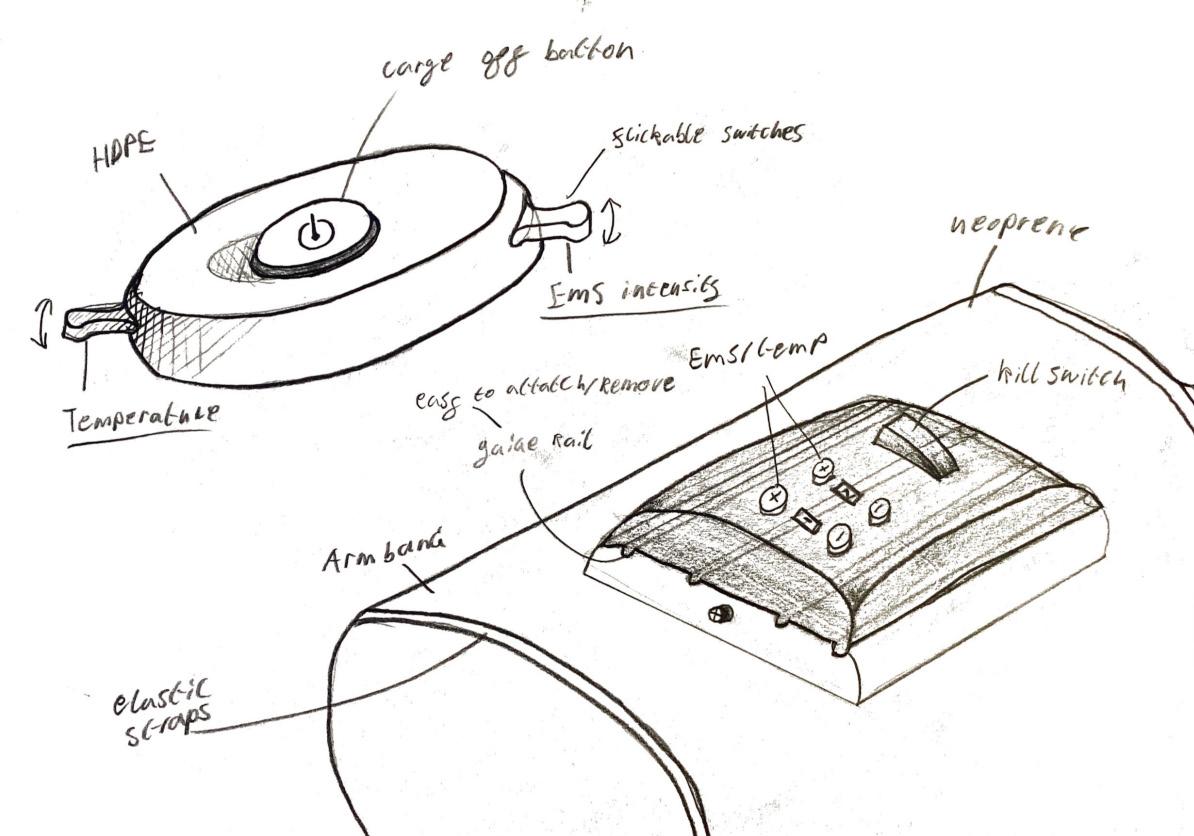 large off button
HDPE
flickable switches
Ems intensity
Temperature
neoprene
Ems/temp
kill switch
easy to attatch/Remove
guide rail
Arm band
elastic
straps
+
+
-
-